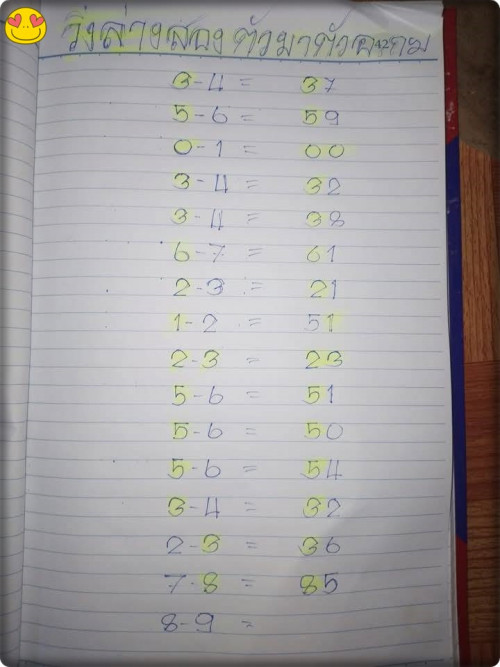 วิ่งล่างสองตัวมาตัว
3-4 = 37
5-6 = 59
0-1 = 00
3-4 = 32
3-4 = 38
6-7 = 61
2-3 = 21
1-2 = 51
2-3 = 23
5-6 = 51
5-6 = 50
5-6 = 54
3-4 = 32
2-3 = 36
7-8 = 85
8-9 =